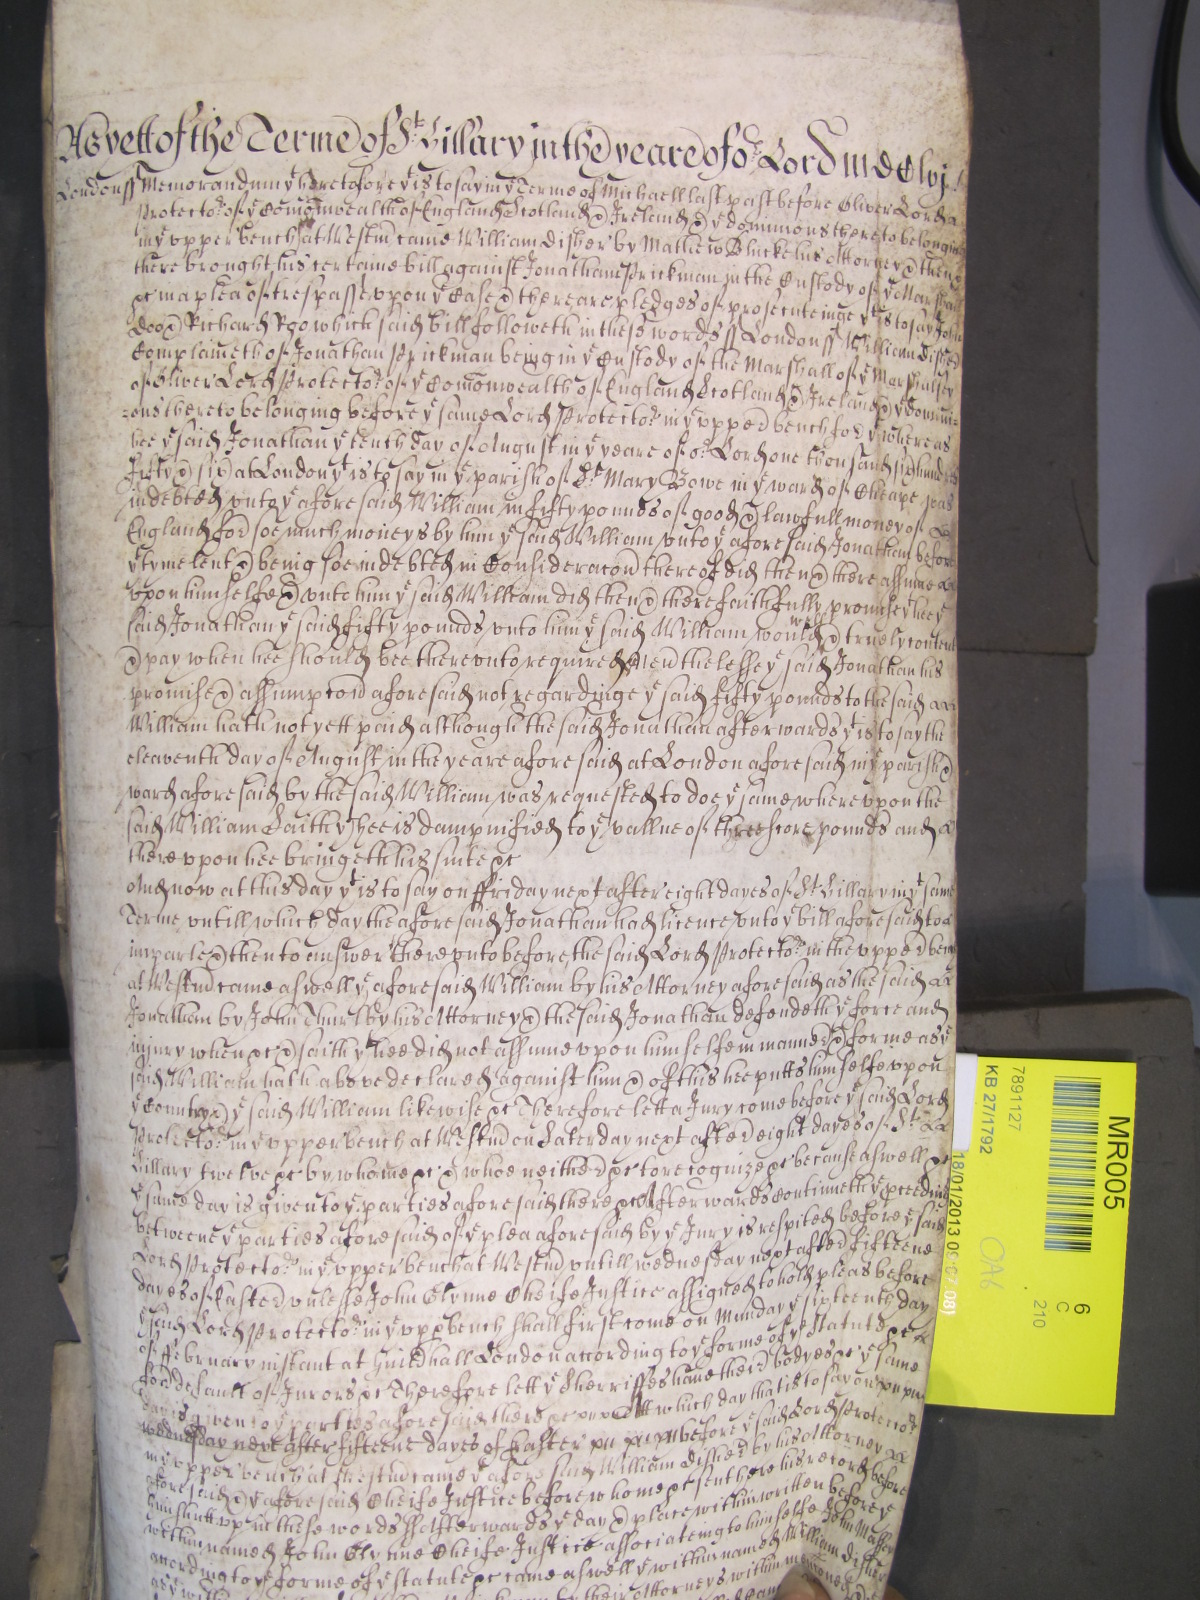 As yett of the Terme of St. Hillary in the yeare of or. Lord MDClvj
London ss Memorandum yt heretofore yt is to say in ye Terme of Michaell last past before Oliver Lord
Protector. of ye Comonwealth of England Scotland & Ireland & ye dominions thereto belonging
in ye upper bench at Westm came William Disher by Mathew Blucke his Attorney & then &
there brought his certaine bill against Jonathan Prickman in the Custody of ye Marshall
&c in a plea of trespasse upon ye Case & there are pledges of prosecuteinge yt is to say John
Doo & Richard Roo which said bill followeth in these words ss London ss William Disher
Complaineth of Jonathan Prickman being in ye Custody of the Marshall of ye Marshalsey
of Oliver Lord Protector. of ye Comonwealth of England Scotland & Ireland & ye domini=
=ons thereto belonging before ye same Lord Protector. in ye upper bench for yt whereas
hee ye said Jonathan ye tenth day of August in ye yeare of or. Lord one thousand six hundred
fifty & six at London yt is to say in ye parish of St. Mary Bowe in ye ward of Cheape was
indebted unto ye aforesaid William in fifty pounds of good & lawfull money of
England for soe much moneys by him ye said William unto ye aforesaid Jonathan before
yt tyme lent & being soe indebted in Consideracon thereof did then & there assume
upon himselfe & unto him ye said William did then & there faithfully promise yt hee ye
said Jonathan ye said fifty pounds unto him ye said William would well & truely content
& pay when hee should bee thereunto required Neverthelesse ye said Jonathan his
promise & assumpcon aforesaid not regardinge ye said fifty pounds to the said
William hath not yett paid although the said Jonathan afterwards yt is to say the
eleaventh day of August in the yeare aforesaid at London aforesaid in ye parish &
ward aforesaid by the said William was requested to doe ye same whereupon the
said William Saith yt hee is dampnified to ye vallue of threescore pounds and
thereupon hee bringeth his suite &c
And now at this day yt is to say on ffriday next after eight dayes of St. Hillary in ye same
Terme untill which day the aforesaid Jonathan had licence unto ye bill aforesaid to
imparle & then to answer thereunto before the said Lord Protector. in the upper bench
at Westm came aswell ye aforesaid William by his Attorney aforesaid as the said
Jonathan by John Thurlby his Attorney & the said Jonathan defendeth ye force and
injury when &c & saith yt hee did not assume upon himselfe in manner & forme as ye
said William hath above declared against him & of this hee putts himselfe upon
ye Country & ye said William likewise &c Therefore lett a Jury come before ye said Lord
Protector. in ye upper bench at Westm on Saturday next after eight dayes of St.
Hillary twelve &c by whome &c & whoe neither &c to recognize &c because aswell &c
ye same day is given to ye parties aforesaid there &c Afterwards continueth ye proceeding
betweene ye parties aforesaid of ye plea aforesaid by ye Jury is respited before ye said
Lord Protector. in ye upper bench at Westm untill wednesday next after fifteene
dayes of Easter unlesse John Glynne Cheife Justice assigned to hold pleas before
ye said Lord Protector. in ye upp bench shall first come on Munday ye sixteenth day
of ffebruary instant at Guildhall London according to ye forme of ye Statute &c
for default of Jurors &c Therefore lett ye Sherriffes have their bodyes &c ye same
day is given to ye parties aforesaid there &c Att which day that is to say on
wednesday next after fifteene dayes of Easter before ye said Lord Protector.
in ye upper bench at Westm came ye aforesaid William Disher by his Attorney
aforesaid & ye aforesaid Cheife Justice before whome &c sent here his record before
him had up in these words ss Afterwards ye day & place within written before ye
within named John Glynne Cheife Justice associateing to himselfe John Massey
according to ye forme of ye statute &c came aswell ye within named William Disher
their Attorneys within mencioned
MR005
6
C
210
7891127
KB 27/1792
18/01/2013
0A6